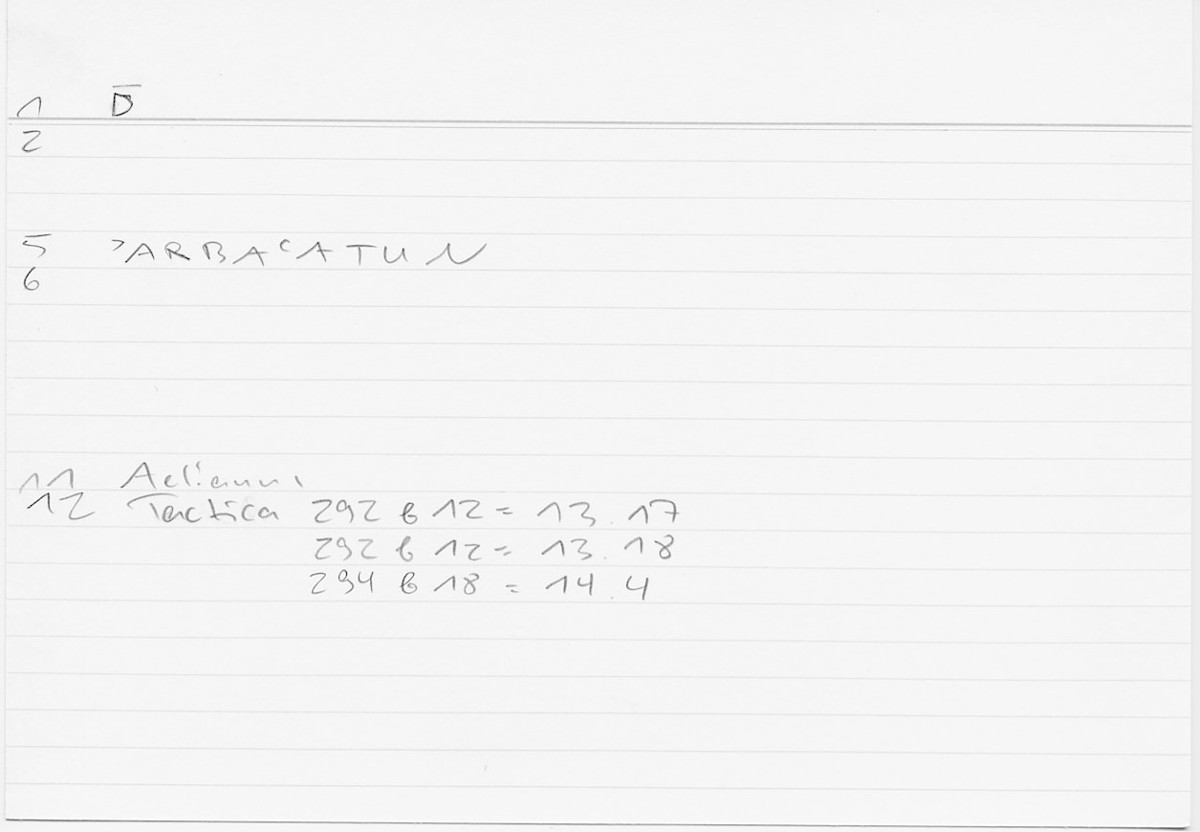 1 D̅
2
5 ʾARBAʿATUN
6
11 Aelianus
12 Tactica 292 b 12 = 13.17
292 b 12 = 13.18
294 b 18 = 14.4